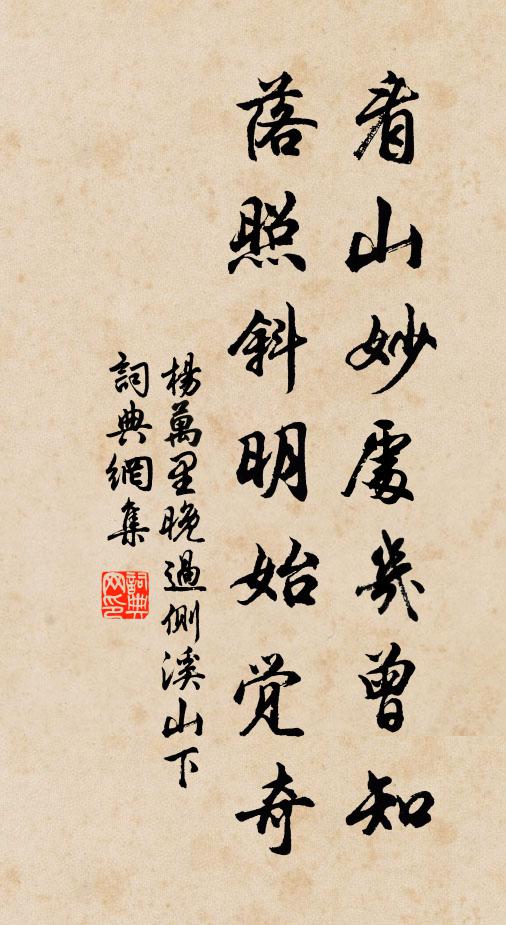 看山妙處幾曾知
落照斜明始觉奇
楊萬里晚過側溪山下
詞典網集
詞典网印